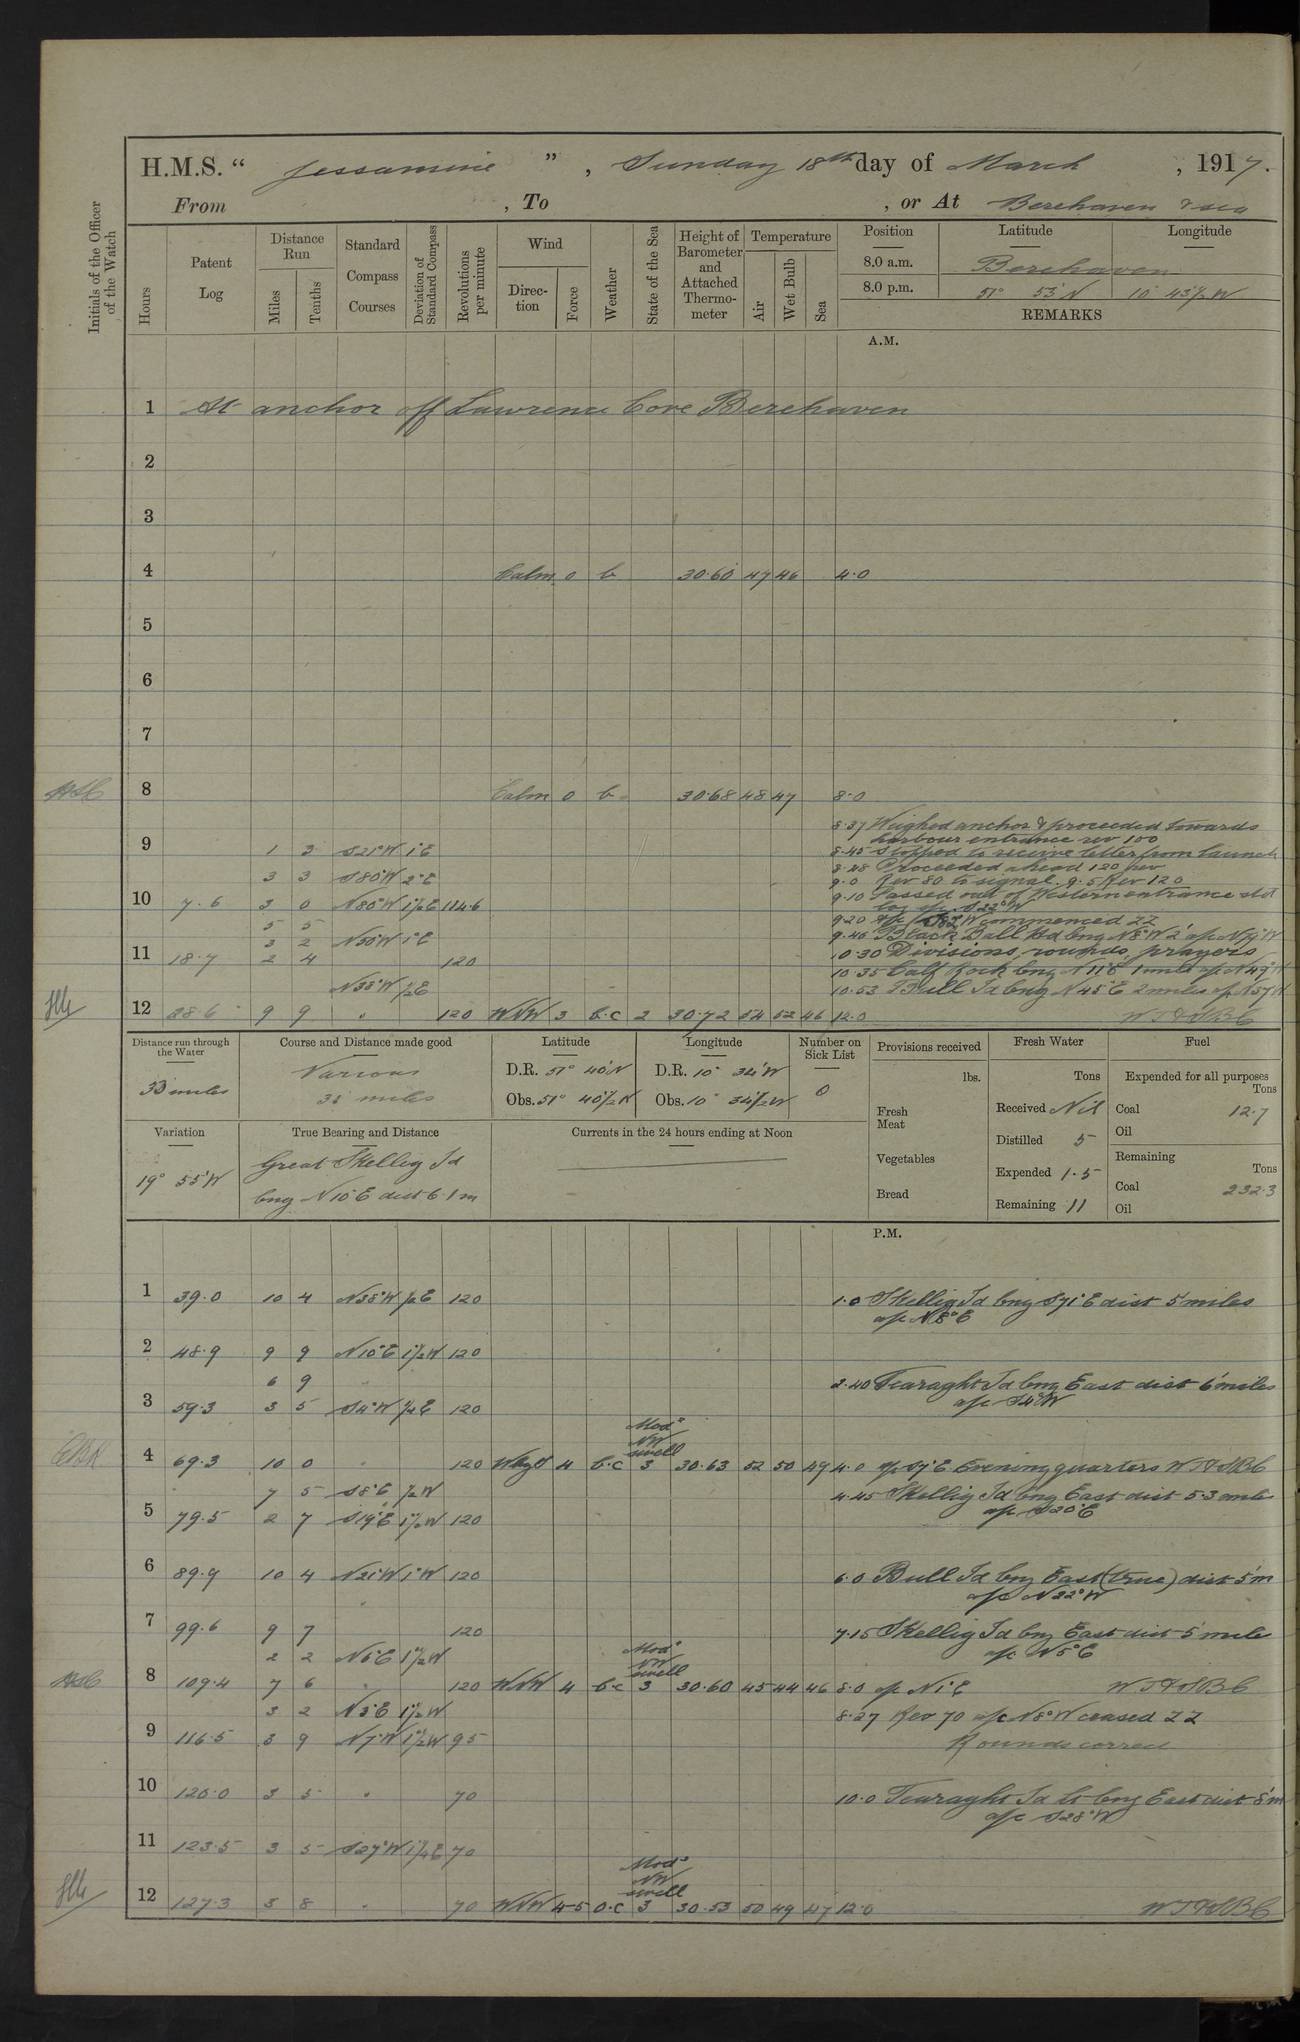 H.M.S. “ Jessamine ” , Sunday 18th day of March , 1917.
From , To , or At Berehaven & sea
Initials of the Officer of the Watch
Hours
Patent Log
Distance Run
Miles
Tenths
Standard Compass Courses
Deviation of Standard Compass
Revolutions per minute
Wind
Direction
Force
Weather
State of the Sea
Height of Barometer and Attached Thermometer
Temperature
Air
Wet Bulb
Sea
Position Latitude Longitude
8.0 a.m. Berehaven
8.0 p.m. 51° 53' N 10° 43½' W
REMARKS
A.M.
1 At anchor off Lawrence Cove Berehaven
2
3
4 Calm 0 b 30.60 47 46 4.0
5
6
7
8 Calm 0 b 30.68 48 47 8.0
8.37 Weighed anchor & proceeded towards
harbour entrance rev 100
9 1 3 S21°W 1°E 8.45 Stopped to receive letter from launch
8.48 Proceeded ahead 120 rev
3 3 S80°W 2°E 9.0 Rev 80 to signal. 9.5 Rev 120
10 7.6 3 0 N80°W 1½E 114.6 9.10 Passed out of Western entrance
log a/c S22°W
5 5 9.20 a/c S82°W commenced ZZ
3 2 N50°W 1°E 9.46 Black Ball Hd bng N8°W 2' a/c N79°W
11 18.7 2 4 120 10.30 Divisions, rounds, prayers
10.35 Calf Rock bng N11°E 1 mile a/c N49°W
N38°W ½E 10.53 Bull Id bng N45°E 2 miles a/c N37°W
12 28.6 9 9 " 120 WNW 3 b.c 2 30.72 54 52 46 12.0
Distance run through the Water
33 miles
Course and Distance made good
Various
33 miles
Latitude
D.R. 51° 40' N
Obs. 51° 40½' N
Longitude
D.R. 10° 34' W
Obs. 10° 34½' W
Number on Sick List
0
Provisions received
lbs.
Fresh Meat
Vegetables
Bread
Fresh Water
Tons
Received Nil
Distilled 5
Expended 1.5
Remaining 11
Fuel
Expended for all purposes
Tons
Coal 12.7
Oil
Remaining
Tons
Coal 232.3
Oil
Variation
19° 55' W
True Bearing and Distance
Great Skellig Id
bng N10°E dist 6.1 m
Currents in the 24 hours ending at Noon
P.M.
1 39.0 10 4 N38°W ½E 120 1.0 Skellig Id bng S71°E dist 5 miles
a/c N8°E
2 48.9 9 9 N10°E 1½W 120
6 9 2.40 Tearaght Id bng East dist 6 miles
3 59.3 3 5 S4°W ½E 120 a/c S4°W
Mod NW swell
4 69.3 10 0 " 120 4 b.c 3 30.63 52 50 49 4.0 a/c S7°E Evening quarters
7 5 S8°E ½W 4.45 Skellig Id bng East dist 5.3 mile
5 79.5 2 7 S19°E 1½W 120 a/c S20°E
6 89.9 10 4 N21°W 1°W 120 6.0 Bull Id bng East (true) dist 5' m
a/c N22°W
7 99.6 9 7 120 7.15 Skellig Id bng East dist 5 mile
2 2 N6°E 1½W a/c N5°E
Mod NW swell
8 109.4 7 6 120 WNW 4 b.c 3 30.60 45 44 46 8.0 a/c N1°E
3 2 N3°E 1½W 8.27 Rev 70 a/c N8°W ceased ZZ
9 116.5 3 9 N7°W 1½W 95 Rounds correct
10 120.0 3 5 " 70 10.0 Tearaght Id lt bng East dist 8' m
a/c S28°W
11 123.5 3 5 S27°W 1¼E 70
Mod NW swell
12 127.3 3 8 " 70 WNW 4-5 o.c 3 30.53 50 49 47 12.0